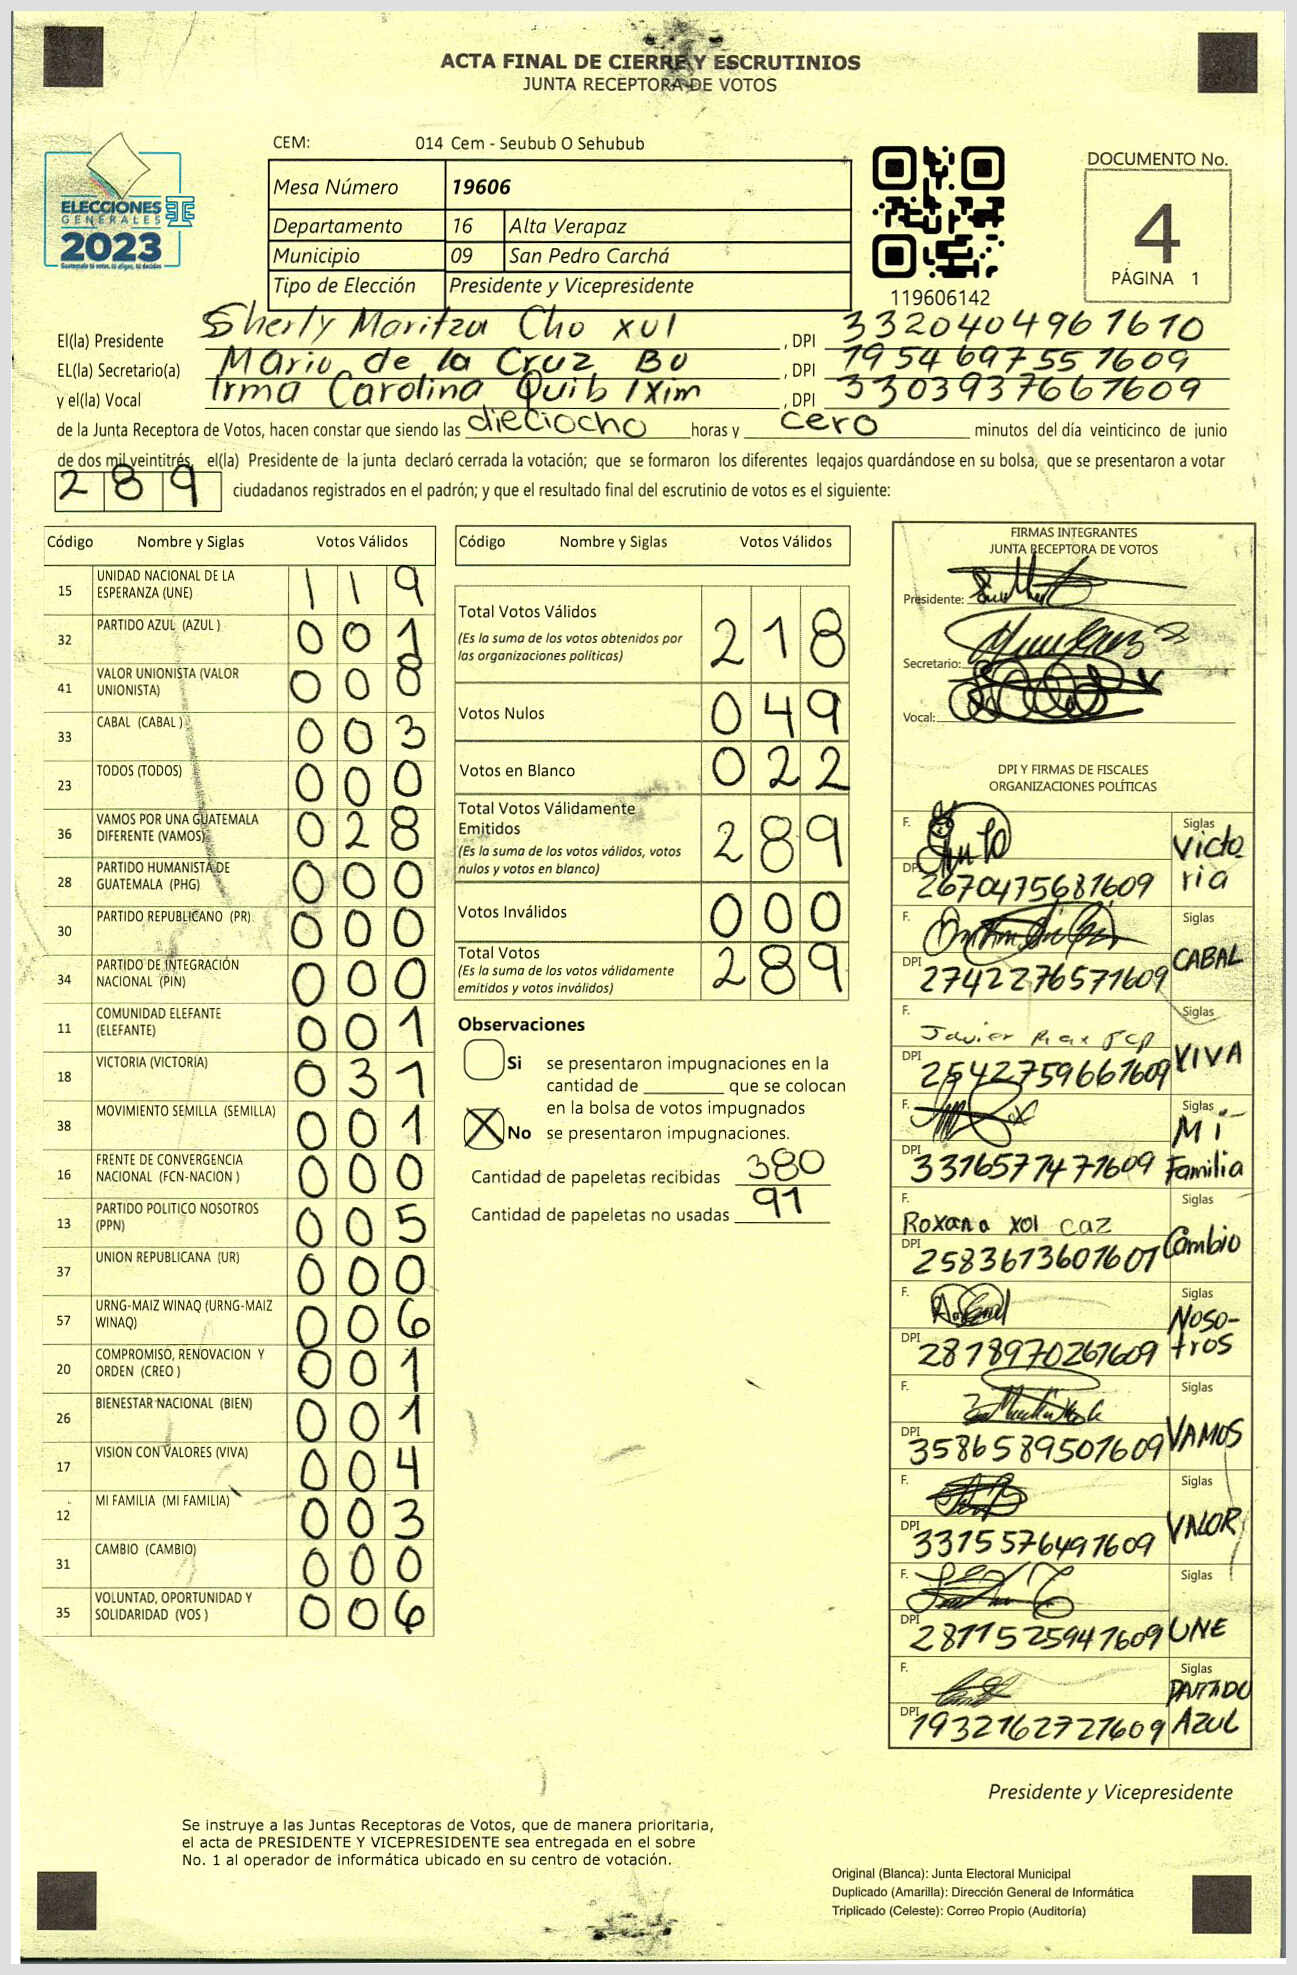 ACTA FINAL DE CIERRE Y ESCRUTINIOS
JUNTA RECEPTORA DE VOTOS
ELECCIONES
GENERALES
2023
CEM: 014 Cem - Seubub O Sehubub
Mesa Número 19606
Departamento 16 Alta Verapaz
Municipio 09 San Pedro Carchá
Tipo de Elección Presidente y Vicepresidente
119606142
DOCUMENTO No.
4
PÁGINA 1
El(la) Presidente Sherly Maritza Cho xul , DPI 3320404961610
EL(la) Secretario(a) Mario de la Cruz Bo , DPI 1954697551609
y el(la) Vocal Irma Carolina Quib Ixim , DPI 3303937661609
de la Junta Receptora de Votos, hacen constar que siendo las dieciocho horas y cero minutos del día veinticinco de junio
de dos mil veintitrés, el(la) Presidente de la junta declaró cerrada la votación; que se formaron los diferentes legajos guardándose en su bolsa, que se presentaron a votar
289 ciudadanos registrados en el padrón; y que el resultado final del escrutinio de votos es el siguiente:
Código Nombre y Siglas Votos Válidos
15 UNIDAD NACIONAL DE LA ESPERANZA (UNE) 119
32 PARTIDO AZUL (AZUL ) 001
41 VALOR UNIONISTA (VALOR UNIONISTA) 008
33 CABAL (CABAL ) 003
23 TODOS (TODOS) 000
36 VAMOS POR UNA GUATEMALA DIFERENTE (VAMOS) 028
28 PARTIDO HUMANISTA DE GUATEMALA (PHG) 000
30 PARTIDO REPUBLICANO (PR) 000
34 PARTIDO DE INTEGRACIÓN NACIONAL (PIN) 000
11 COMUNIDAD ELEFANTE (ELEFANTE) 001
18 VICTORIA (VICTORIA) 031
38 MOVIMIENTO SEMILLA (SEMILLA) 001
16 FRENTE DE CONVERGENCIA NACIONAL (FCN-NACION ) 000
13 PARTIDO POLITICO NOSOTROS (PPN) 005
37 UNION REPUBLICANA (UR) 000
57 URNG-MAIZ WINAQ (URNG-MAIZ WINAQ) 006
20 COMPROMISO, RENOVACION Y ORDEN (CREO ) 001
26 BIENESTAR NACIONAL (BIEN) 001
17 VISION CON VALORES (VIVA) 004
12 MI FAMILIA (MI FAMILIA) 003
31 CAMBIO (CAMBIO) 000
35 VOLUNTAD, OPORTUNIDAD Y SOLIDARIDAD (VOS ) 006
Código Nombre y Siglas Votos Válidos
Total Votos Válidos 218
(Es la suma de los votos obtenidos por
las organizaciones políticas)
Votos Nulos 049
Votos en Blanco 022
Total Votos Válidamente
Emitidos 289
(Es la suma de los votos válidos, votos
nulos y votos en blanco)
Votos Inválidos 000
Total Votos 289
(Es la suma de los votos válidamente
emitidos y votos inválidos)
Observaciones
Si se presentaron impugnaciones en la
cantidad de ________ que se colocan
en la bolsa de votos impugnados
X No se presentaron impugnaciones.
Cantidad de papeletas recibidas 380
Cantidad de papeletas no usadas 91
FIRMAS INTEGRANTES
JUNTA RECEPTORA DE VOTOS
Presidente:
Secretario:
Vocal:
DPI Y FIRMAS DE FISCALES
ORGANIZACIONES POLÍTICAS
F. Siglas Victoria
DPI 2670475681609
F. Siglas CABAL
DPI 2742276571609
F. Javier Siglas VIVA
DPI 2542759661609
F. Siglas Mi Familia
DPI 3316577471609
F. Roxana xol caz Siglas Cambio
DPI 2583613601601
F. Siglas Nosotros
DPI 2818970261609
F. Siglas VAMOS
DPI 3586589501609
F. Siglas VALOR
DPI 3315576491609
F. Siglas UNE
DPI 2811525941609
F. Siglas PARTIDO AZUL
DPI 1932162721609
Presidente y Vicepresidente
Se instruye a las Juntas Receptoras de Votos, que de manera prioritaria,
el acta de PRESIDENTE Y VICEPRESIDENTE sea entregada en el sobre
No. 1 al operador de informática ubicado en su centro de votación.
Original (Blanca): Junta Electoral Municipal
Duplicado (Amarilla): Dirección General de Informática
Triplicado (Celeste): Correo Propio (Auditoría)